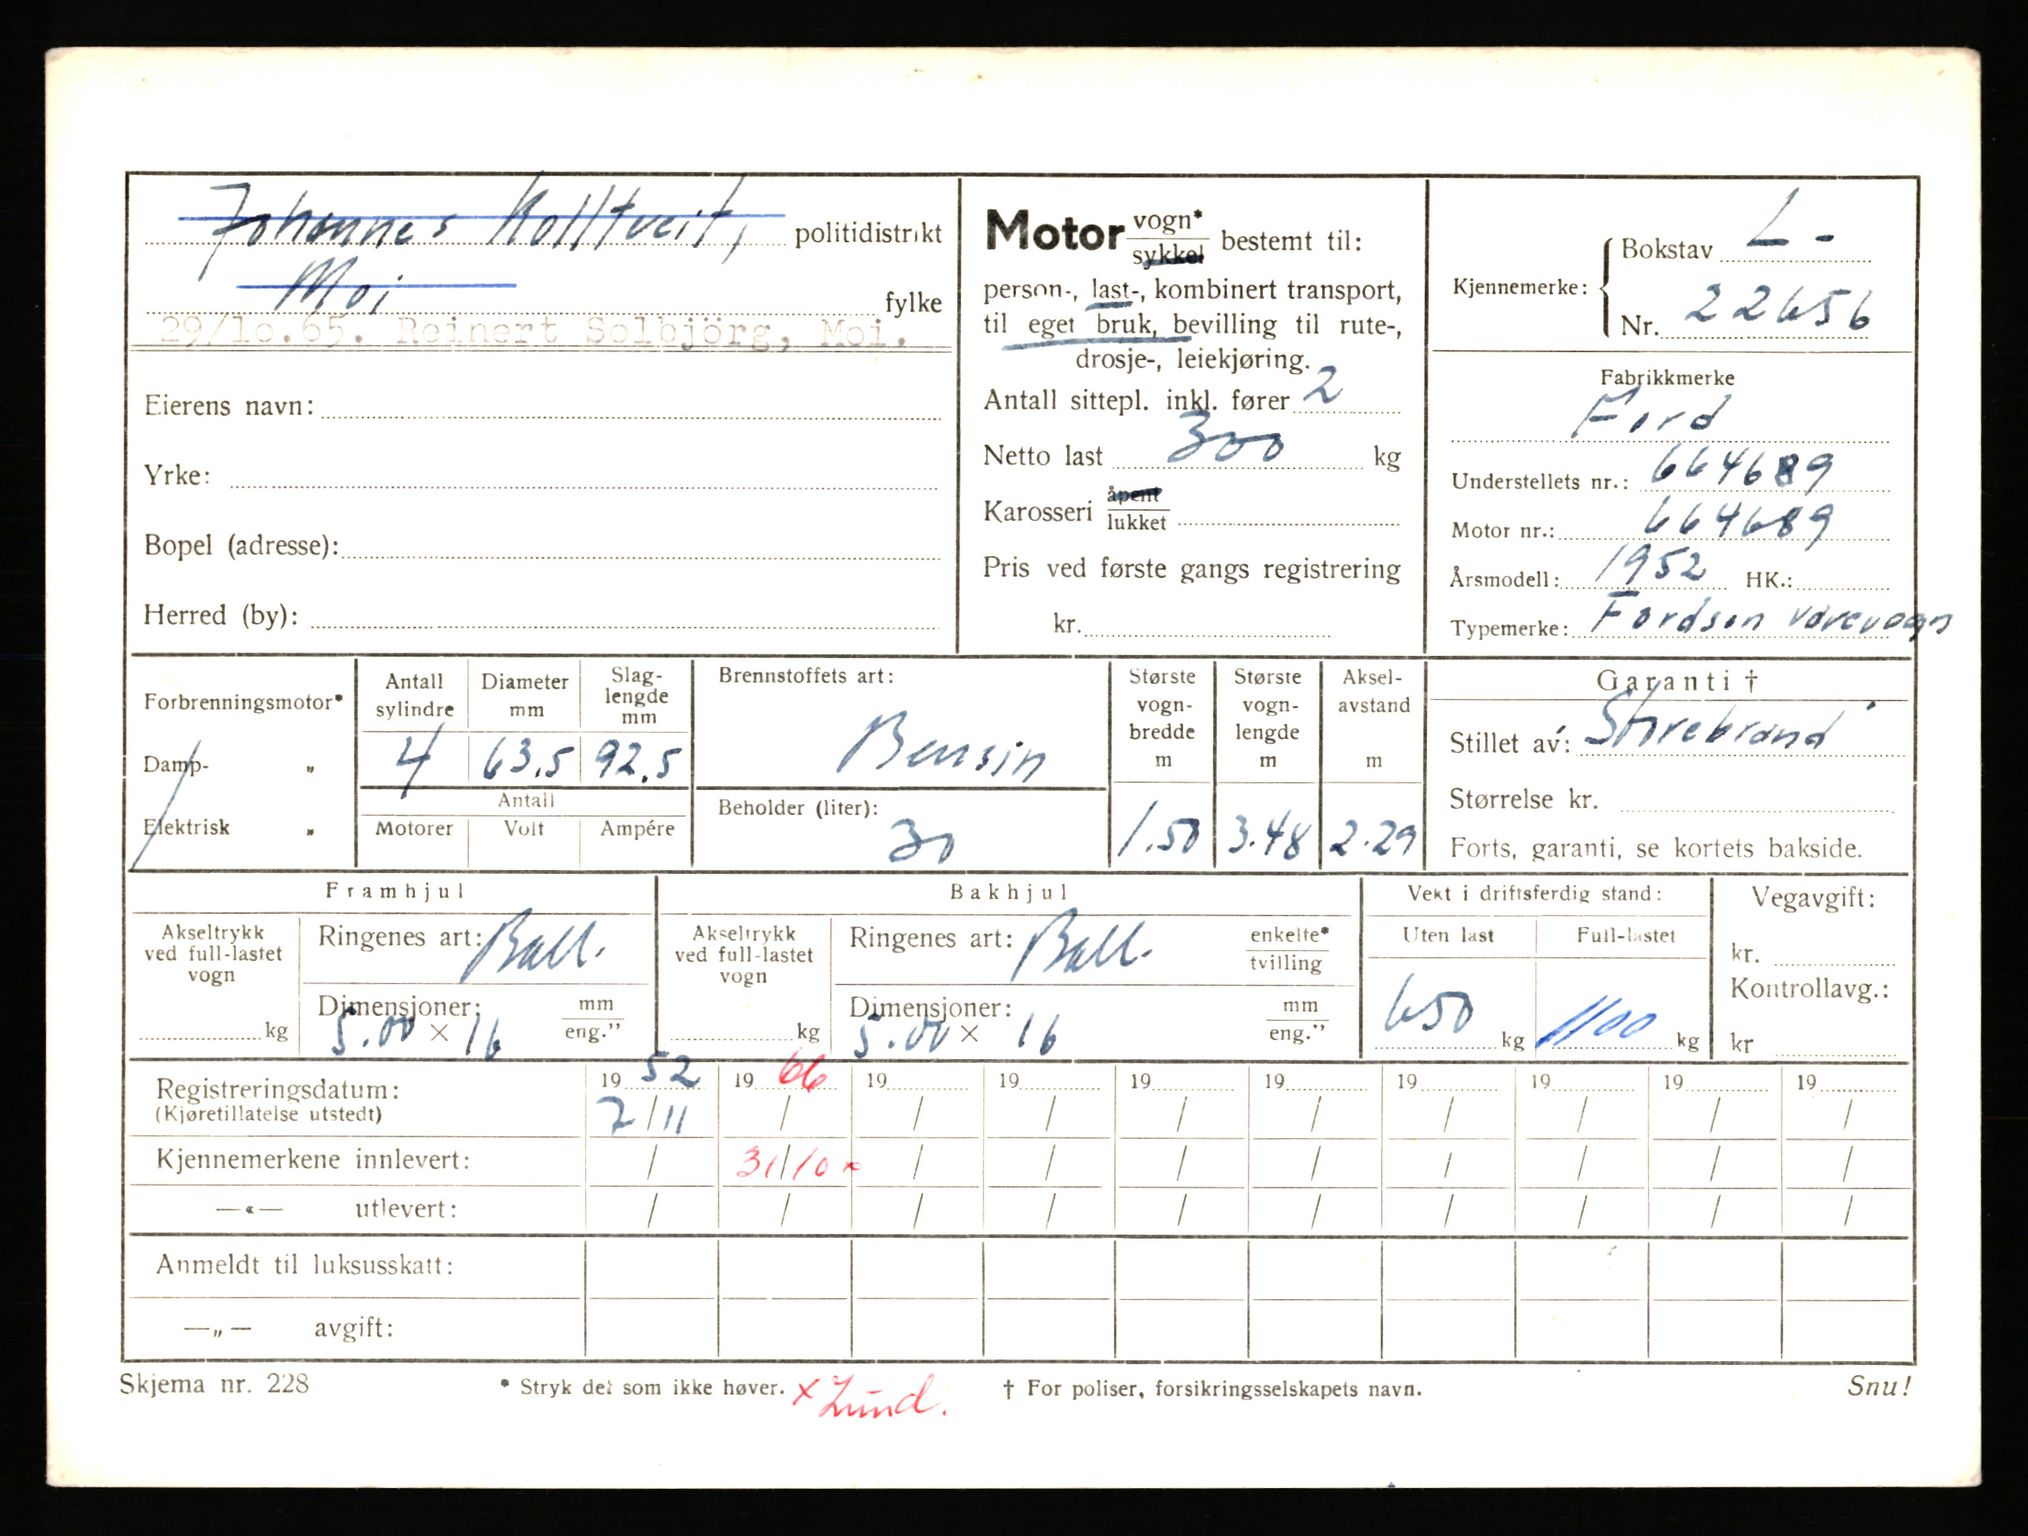 Johannes Kolltveit, politidistrikt
Moi fylke
29/10.65. Reinert Solbjörg, Moi.
Eierens navn:
Yrke:
Bopel (adresse):
Herred (by):
Motor vogn* sykkel bestemt til:
person-, last-, kombinert transport,
til eget bruk, bevilling til rute-,
drosje-, leiekjøring.
Antall sittepl. inkl. fører 2
Netto last 300 kg
Karosseri åpent lukket
Pris ved første gangs registrering
kr.
Kjennemerke: Bokstav L-
Nr. 22656
Fabrikkmerke
Ford
Understellets nr.: 664689
Motor nr.: 664689
Årsmodell: 1952 HK.:
Typemerke: Fordson varevogn
Forbrenningsmotor*
Damp- „
Elektrisk „
Antall sylindre Diameter mm Slag-lengde mm
4 63,5 92,5
Antall
Motorer Volt Ampére
Brennstoffets art:
Bensin
Beholder (liter):
30
Største vogn-bredde m
1.50
Største vogn-lengde m
3.48
Aksel-avstand m
2.29
Garanti †
Stillet av: Storebrand
Størrelse kr.
Forts, garanti, se kortets bakside.
Framhjul
Akseltrykk ved full-lastet vogn
kg
Ringenes art: Ball.
Dimensjoner: mm
5.00 × 16 eng."
Bakhjul
Akseltrykk ved full-lastet vogn
kg
Ringenes art: Ball. enkelte* tvilling
Dimensjoner: mm
5.00 × 16 eng."
Vekt i driftsferdig stand:
Uten last Full-lastet
650 kg 1100 kg
Vegavgift:
kr.
Kontrollavg.:
kr
Registreringsdatum: 19 52 19 66 19 19 19 19 19 19 19 19
(Kjøretillatelse utstedt) 7/11 / / / / / / / / /
Kjennemerkene innlevert: / 31/10 × / / / / / / / /
—«— utlevert: / / / / / / / / / /
Anmeldt til luksusskatt:
—„— avgift:
Skjema nr. 228 * Stryk det som ikke høver. × Lund. † For poliser, forsikringsselskapets navn. Snu!